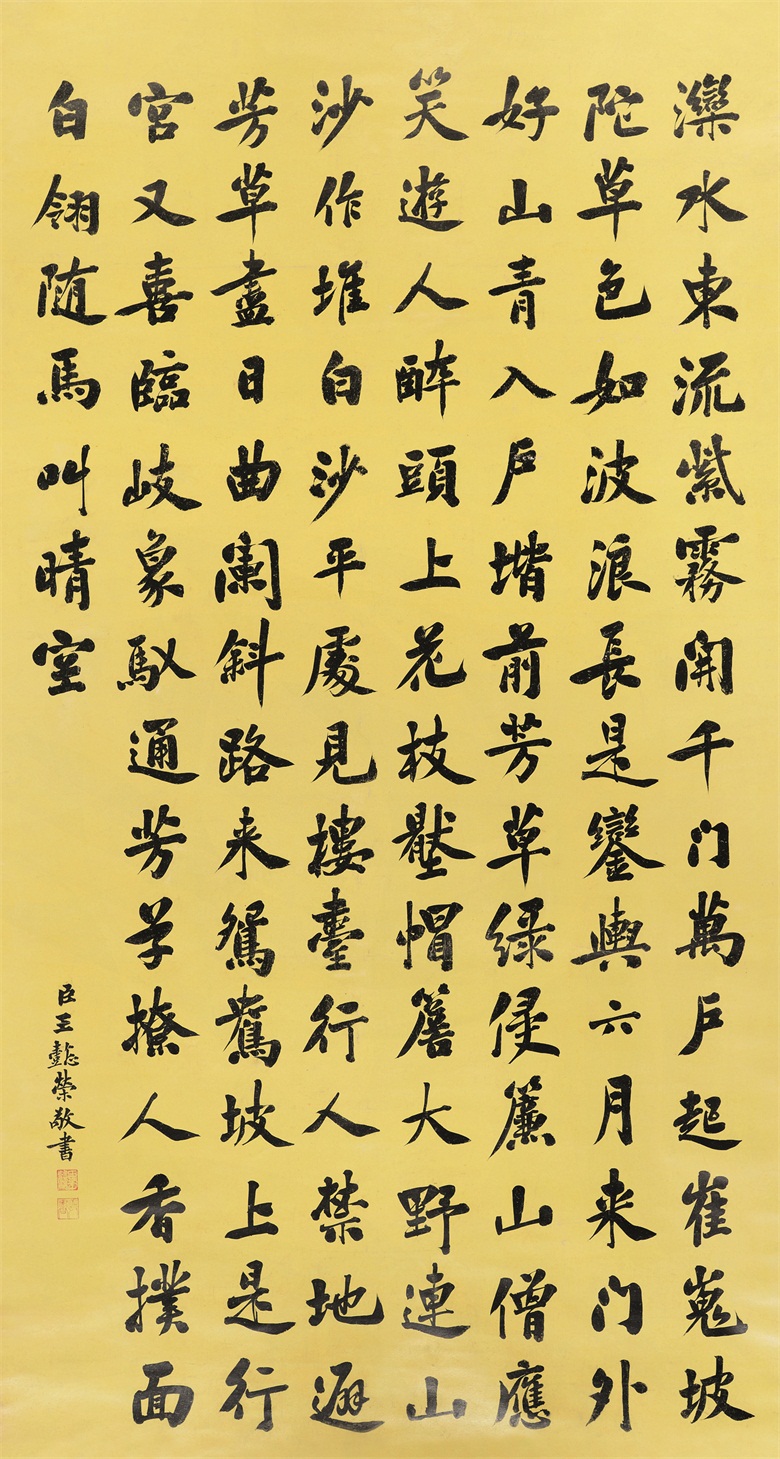 灤水東流紫霧開千门萬戶起崔嵬坡
陀草色如波浪長是鑾輿六月来门外
好山青入戶堦前芳草緑侵簾山僧應
笑遊人醉頭上花枝壓帽簷大野連山
沙作堆白沙平處見樓臺行人禁地避
芳草盡日曲闌斜路来鴛鴦坡上是行
宮又喜臨歧象馭通芳草撩人香撲面
白翎随馬叫晴空
臣王懿榮敬書